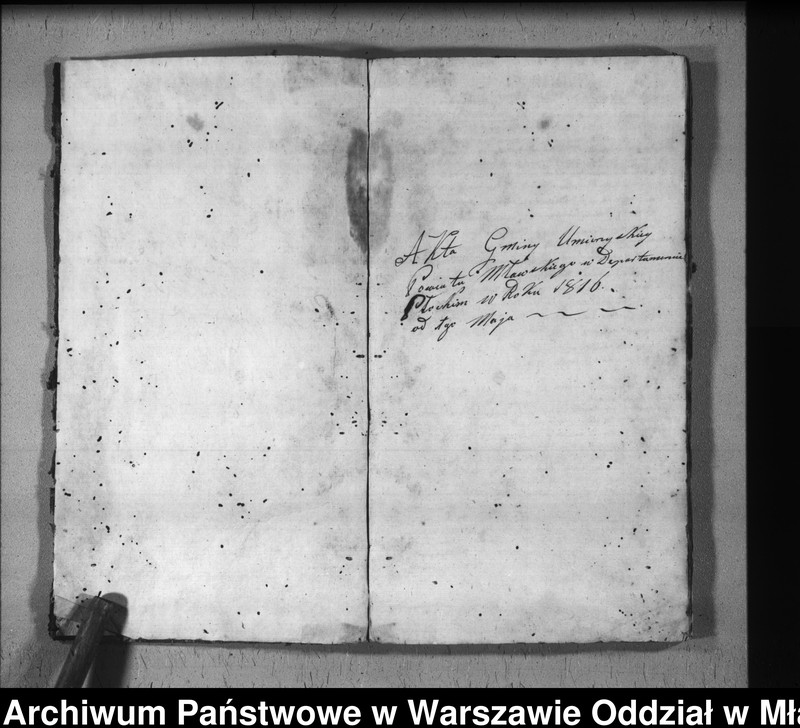 Akta Gminy Umiorzyskiey
Powiatu Mławskiego w Departamencie
Płockim w Roku 1816.
od 1go Maja
Archiwum Państwowe w Warszawie Oddział w Mł